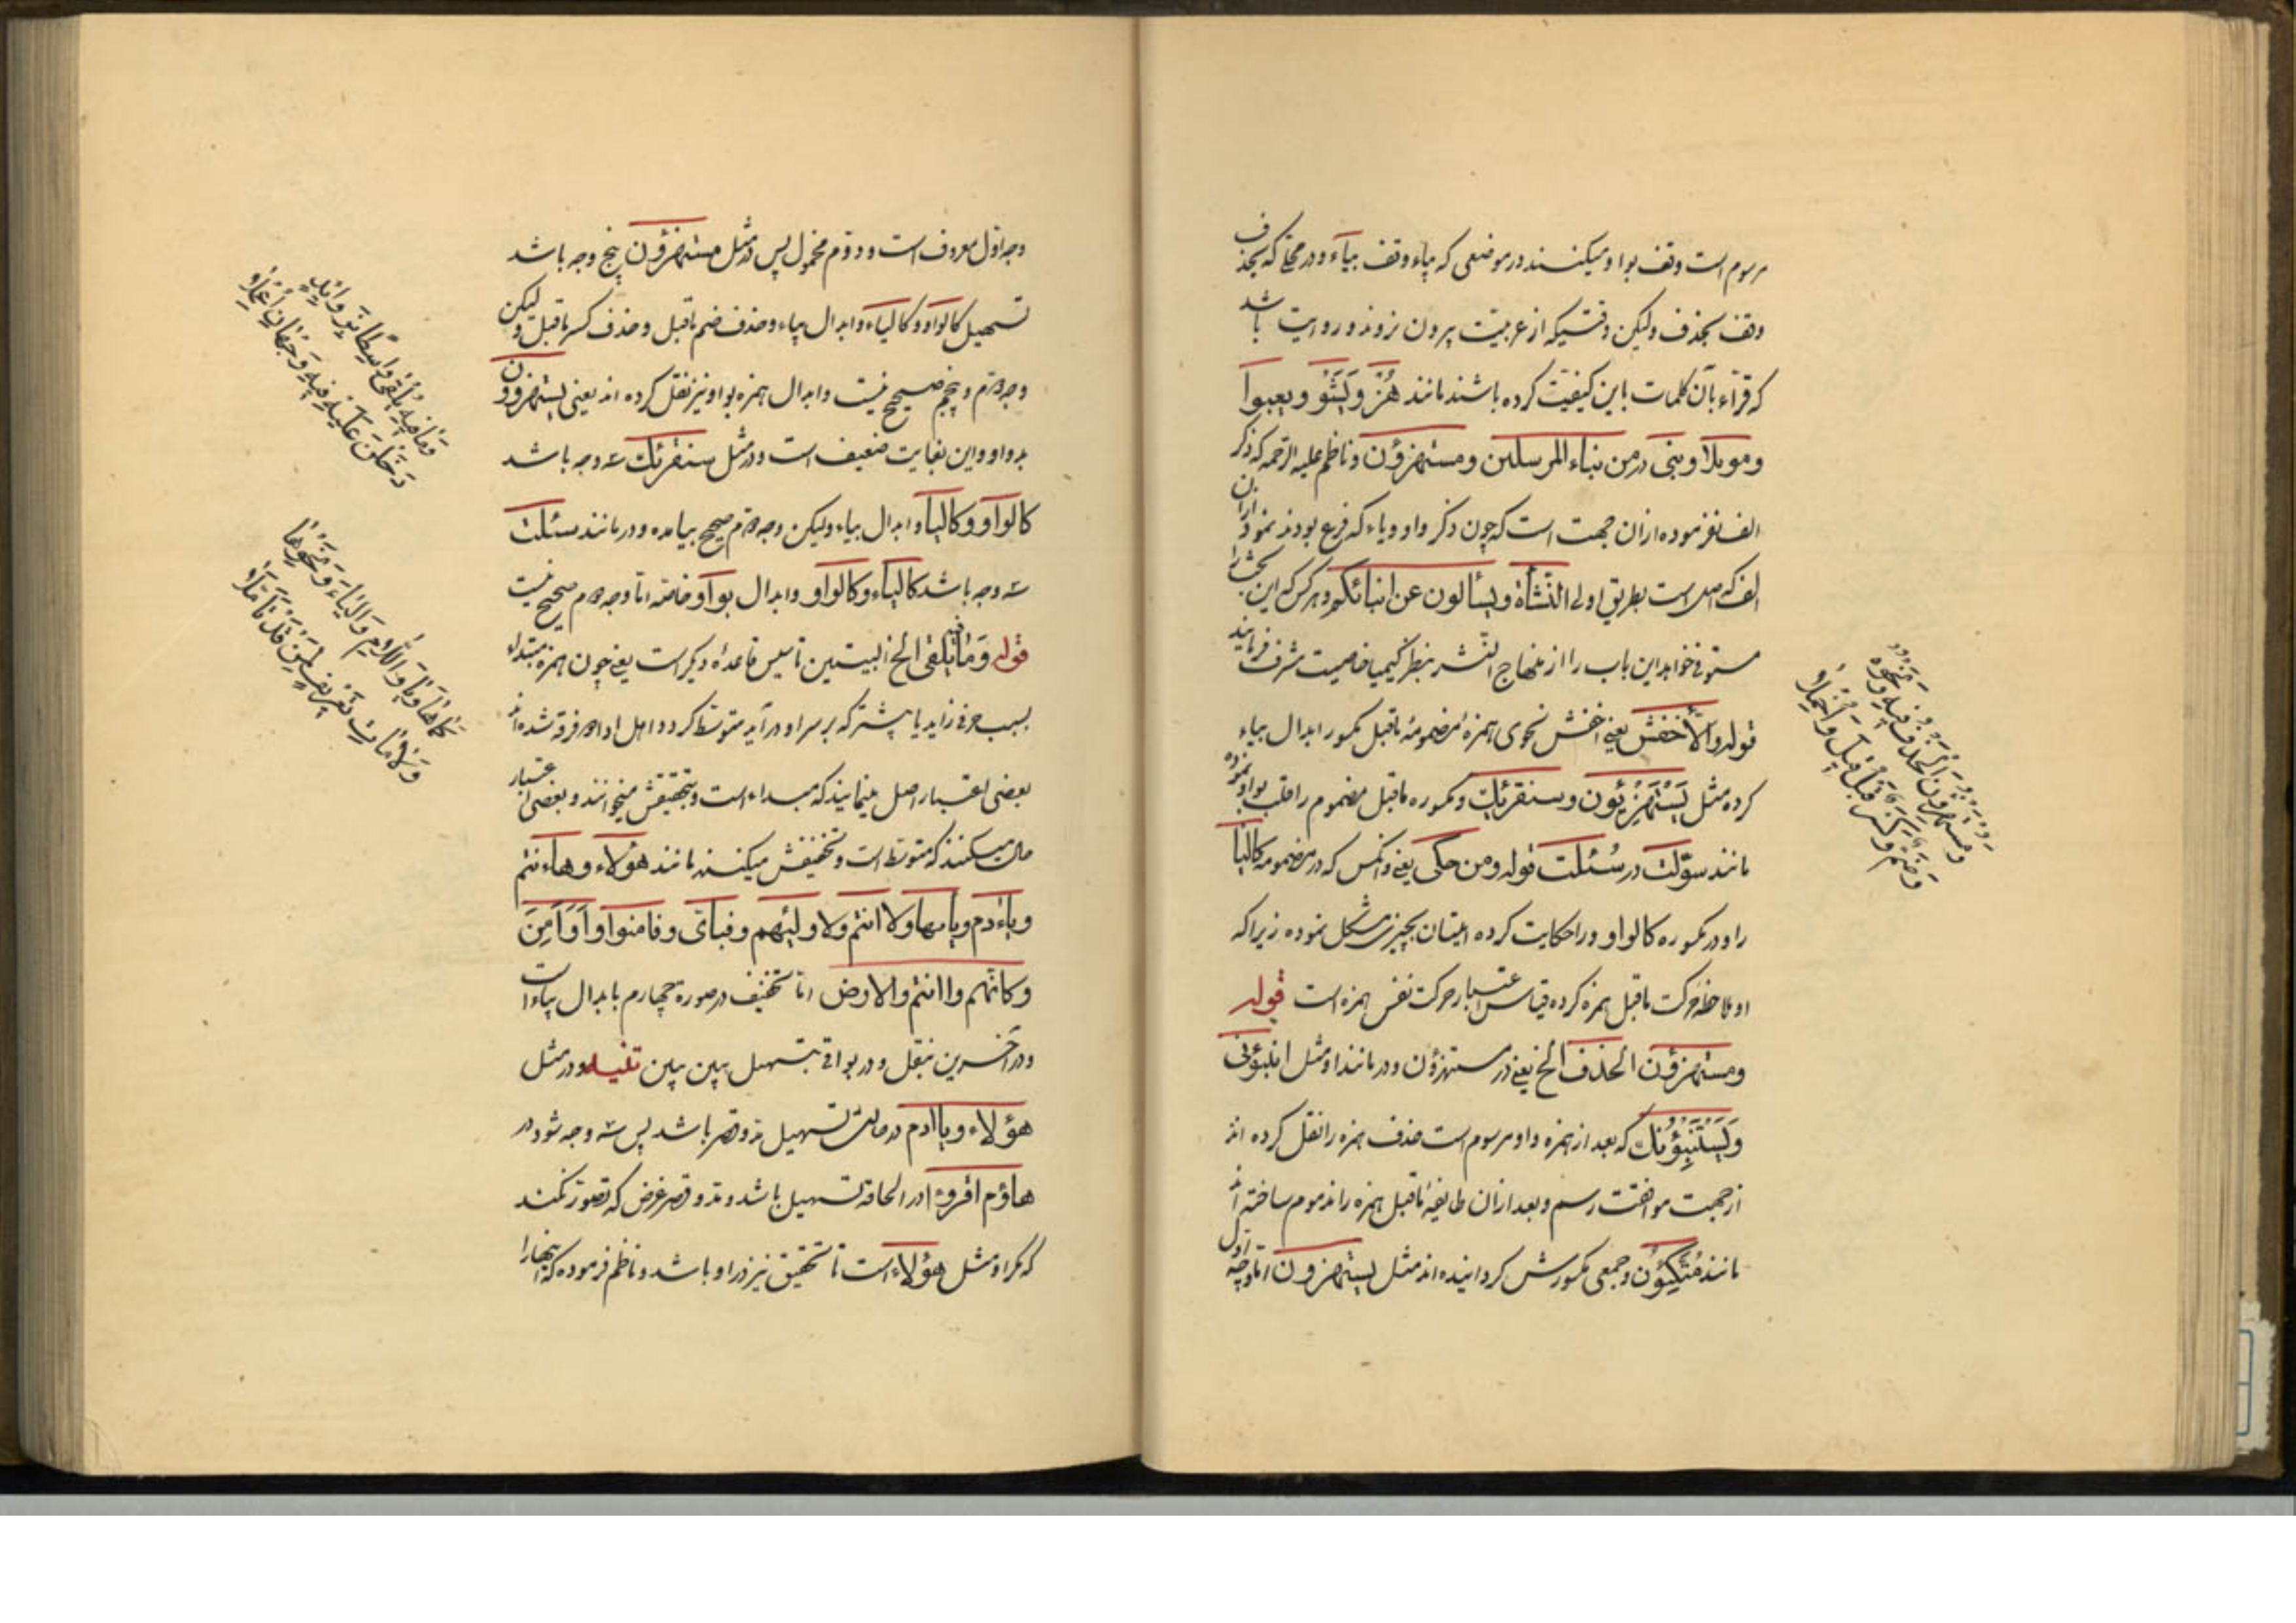 مرسوم است وقف بواو میکنند در موضعی که بیاء وقف بیآء و در محلی که بحذف
وقف بحذف ولیکن وقتیکه از عربیّت بیرون نرود و روایت باشد
که قرّاء بآن کلمات باین کیفیّت کرده باشند مانند هُزُو وَیَشَؤُ ویعبوا
وموئلا ونبی در من نباء المرسلین ومستهزؤن وناظم علیه الرحمه که ذکر
الف نفرموده از ان جهت است که چون ذکر واو ویاء که فرع بودند نمود از ان
الف که اصل است بطریق اولی النشأة ویسألون عن انبائکم وهر کس که این بحث را
مستوفی خواهد این باب را از منهاج النشر بنظر کیمیا خاصیت مشرف فرمایند
قوله والأخفش یعنی اخفش نحوی همزهٔ مضمومهٔ ماقبل مکسور ابدال بیاء
کرده مثل یَسْتَهْزِئُون وسنقرئك ومکسوره ماقبل مضموم را قلب بواو نموده
مانند سوّلت در سُئلت قوله ومن حکی یعنی وانکس که در مضمومه کالیا
را ودر مکسوره کالواو را حکایت کرده اتیان بچیز مشکل نموده زیراکه
او ملاحظه حرکت ماقبل همزه کرده قیاس اعتبار حرکت نفس همزه است قوله
ومستهزؤن الحذف الخ یعنی در مستهزؤن ودر مانند او مثل انبئونی
وَیَسْتَنْبِؤُنَك که بعد از همزه واو مرسوم است حذف همزه را نقل کرده اند
از جهت موافقت رسم وبعد از ان طایفهٔ ماقبل همزه را مضموم ساخته اند
مانند مُتَّکِئُون وجمعی مکسورش کردانیده اند مثل یستهزون امّا وجه اول
وضم وکسر قبل قیل واخملا
ومستهزؤن الحذف فیه ونحوه
وجه اوّل معروف است و دوّم مخمول پس در مثل مستهزؤن پنج وجه باشد
تسهیل کالواو وکالیآء وابدال بیاء وحذف ضم ماقبل وحذف کسر ماقبل ولیکن
وجه دوّم وپنجم صحیح نیست وابدال همزه بواو نیز نقل کرده اند یعنی یستهزوون
بدواو واین بغایت ضعیف است ودر مثل سنقرئك سه وجه باشد
کالواو وکالیاء وابدال بیاء ولیکن وجه دوّم صحیح نیامده ودر مانند سئلت
سه وجه باشد کالیآء وکالواو وابدال بوآو خاصّه امّا وجه دوم صحیح نیست
قوله وَمَا فیه یُلقی الخ البیتین تاسیس قاعدهٔ دیکر است یعنی چون همزه مبتداء
بسبب حرفی زاید یا بیشتر که بر سر او در آید متوسّط کردد اهل ادا دو فرقه شده اند
بعضی اعتبار اصل مینمایند که مبتداء است وبتحقیقش میخوانند وبعضی اعتبار
حال میکنند که متوسّط است وتخفیفش میکنند مانند هؤلاء وهاءنتم
ویاءدم ویا‌ایها ولا انتم ولاولیٰهم وفبای وفامنوا وآوآمِنَ
وکانّهم واانتم والارض امّا تخفیف در صورة چهارم بابدال بیاء است
ودر آخرین بنقل ودر بواقی بتسهیل بین بین تنبیه ودر مثل
هؤلاء ویاادم در حالت تسهیل مدّ وقصر باشد پس سه وجه شود در
هاؤم اقرؤا در الحاقة تسهیل باشد ومد وقصر غرض که تصور نکند
که مکر او مثل هؤلاء است تا تحقیق نیز در او باشد وناظم فرموده که اینها را
وَمَا فِیهِ یُلْقَی وَاسِطًا بِزَوَائِدٍ
دَخَلْنَ عَلَیْهِ فِیهِ وَجْهَانِ أُعْمِلَا
کَمَا هَا وَیَا وَاللَّامِ وَالْبَاءِ وَنَحْوِهَا
وَلَامَاتِ تَعْرِیفٍ لِمَنْ قَدْ تَأَمَّلَا